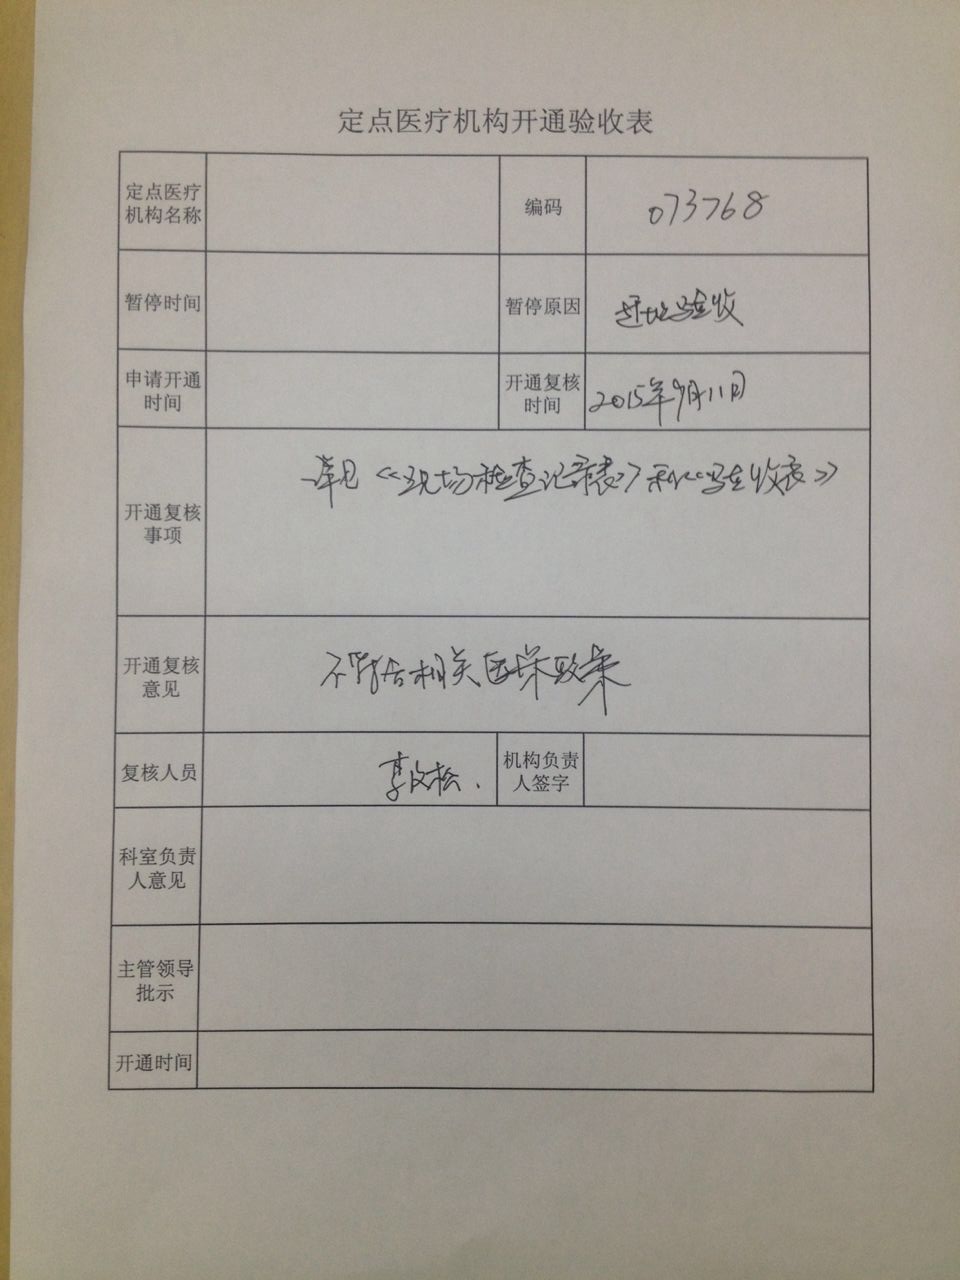 定点医疗机构开通验收表
定点医疗
机构名称
编码
073768
暂停时间
暂停原因
迁址验收
申请开通
时间
开通复核
时间
2015年9月11日
开通复核
事项
详见《现场检查记录表》和《验收表》
开通复核
意见
不符合相关医保政策
复核人员
李文松.
机构负责
人签字
科室负责
人意见
主管领导
批示
开通时间